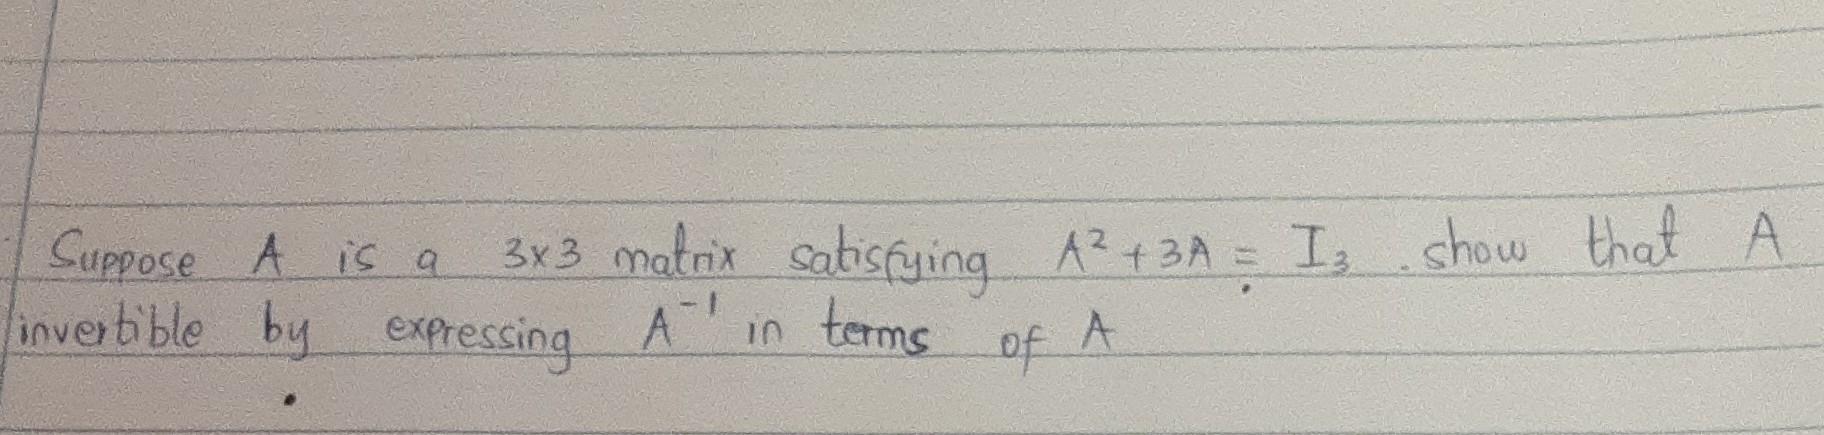 Suppose A is a 3x3 matrix satisfying A² + 3A = I₃ . show that A
invertible by expressing A⁻¹ in terms of A